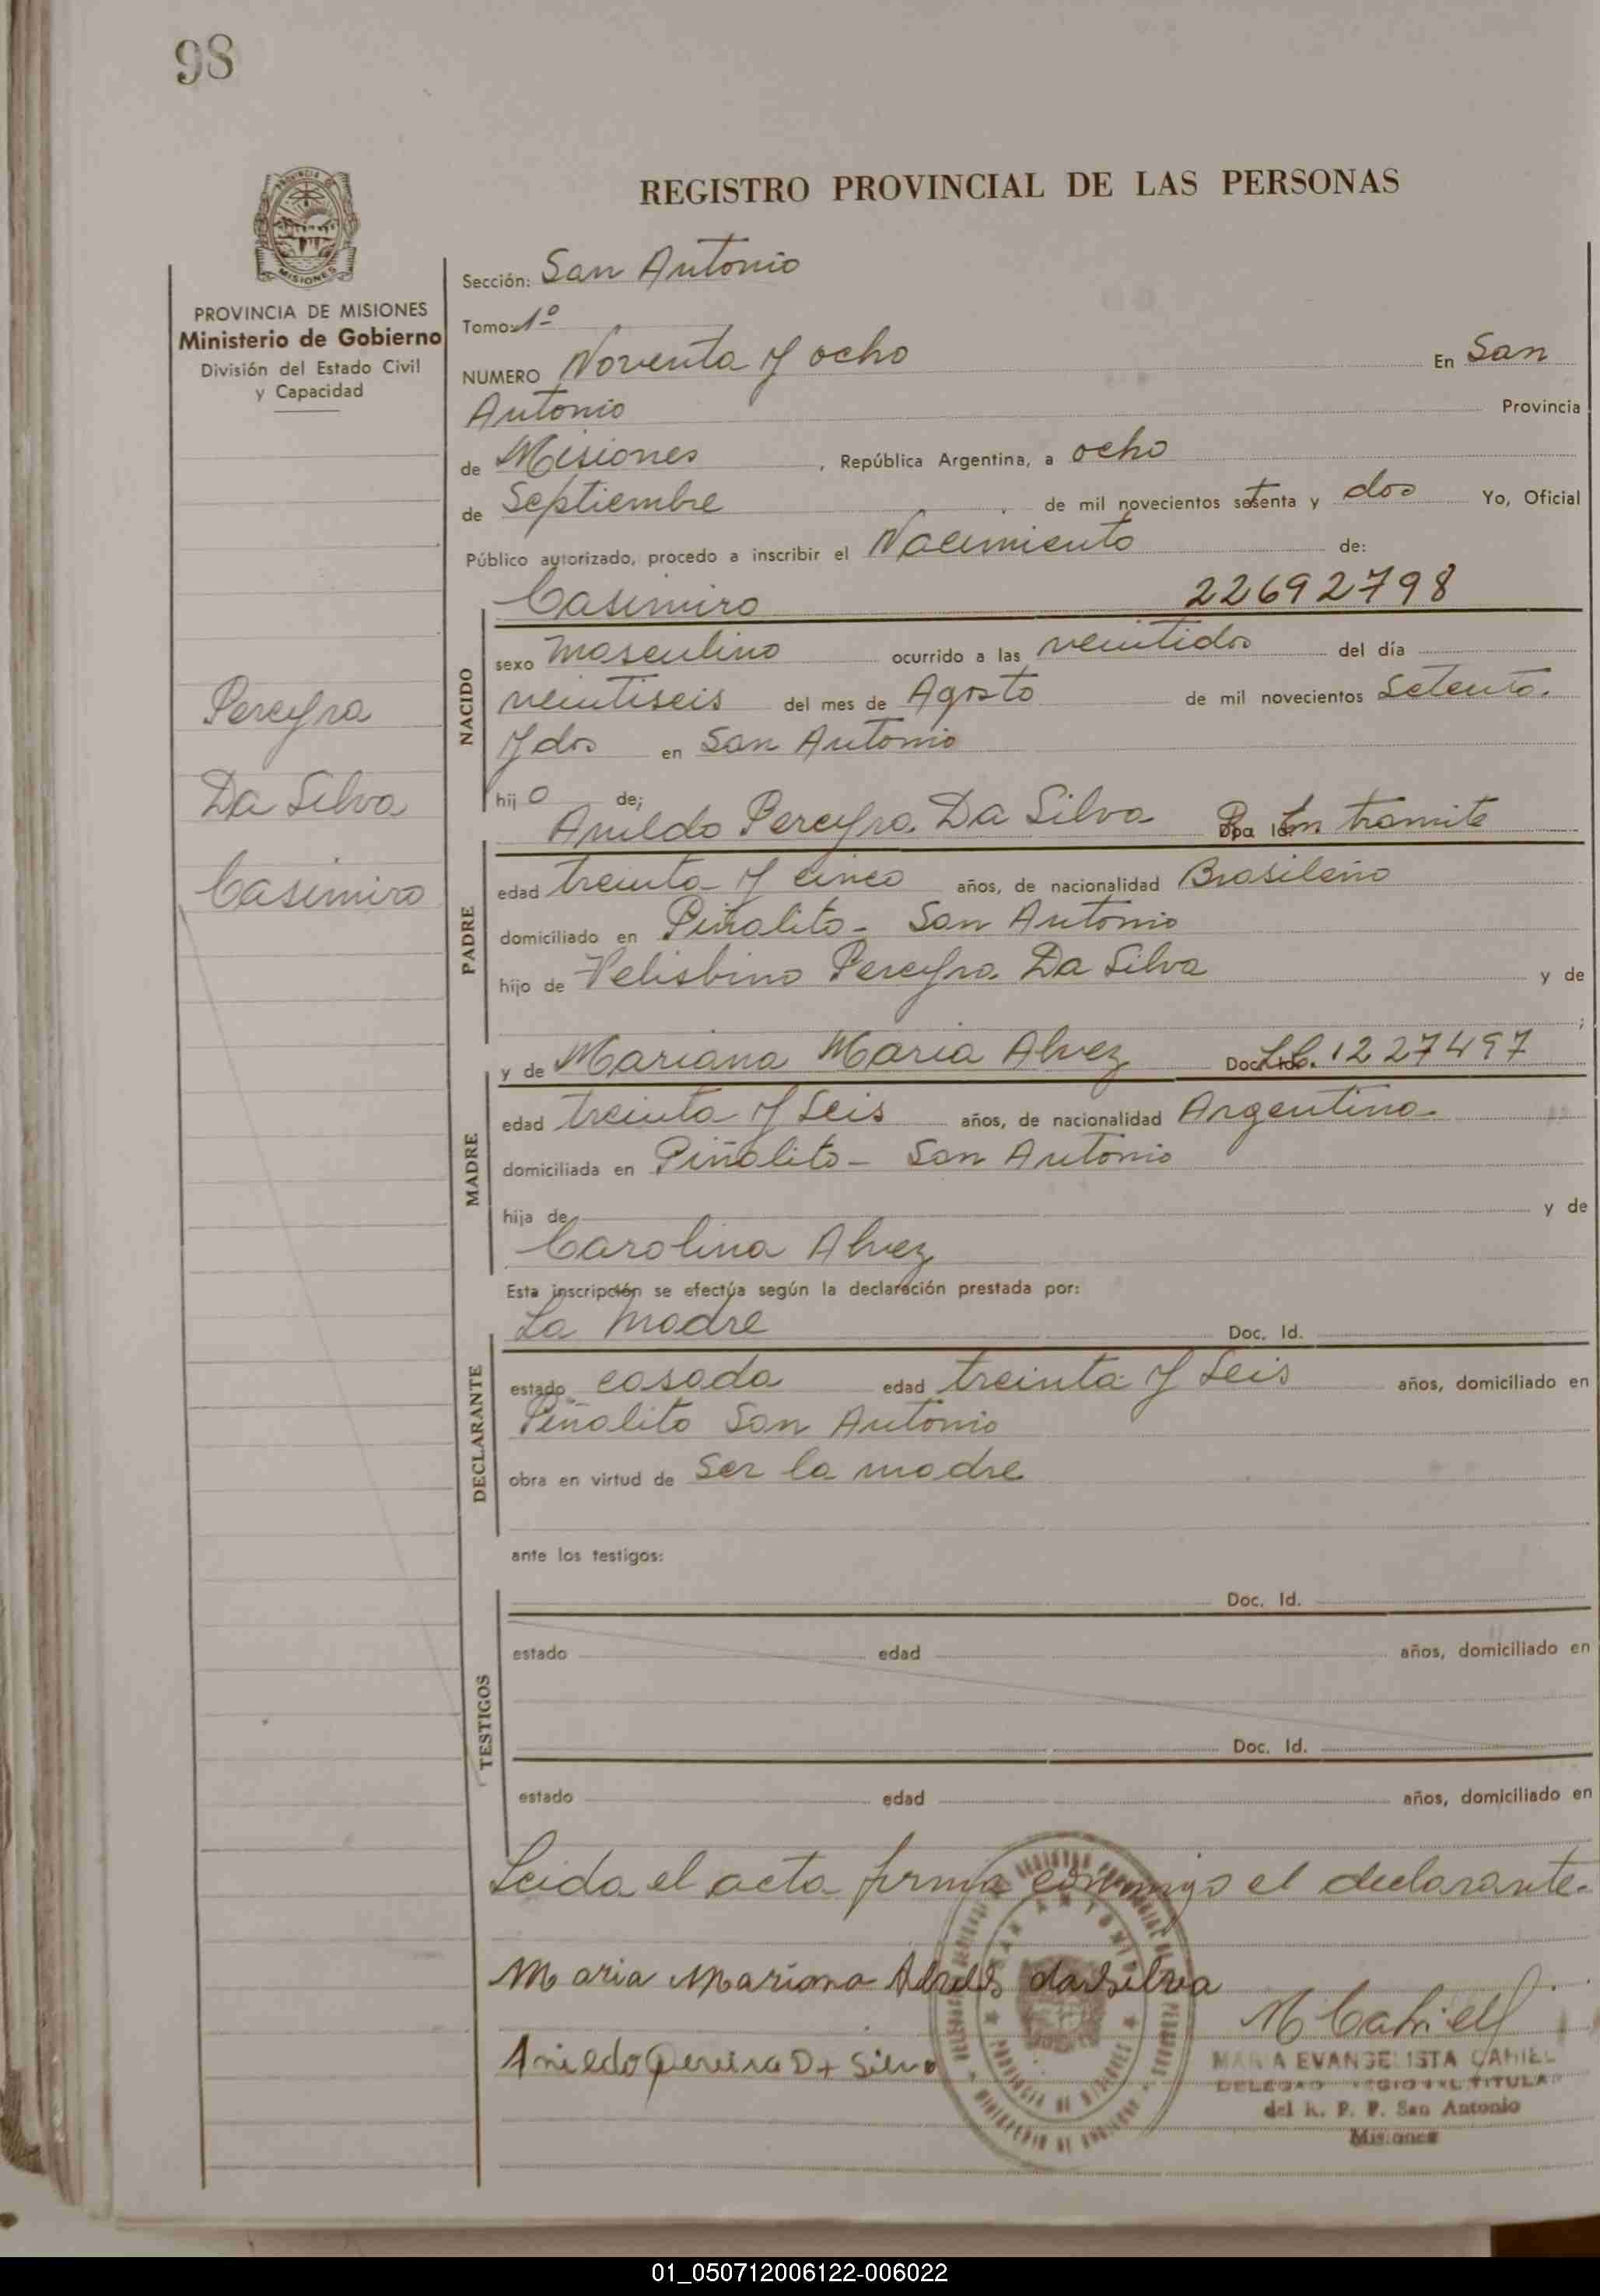 98
REGISTRO PROVINCIAL DE LAS PERSONAS
MISIONES
PROVINCIA DE MISIONES
Ministerio de Gobierno
División del Estado Civil
y Capacidad
Pereyra
Da Silva
Casimiro
Sección: San Antonio
Tomo: 1º
NUMERO Noventa y ocho En San
Antonio Provincia
de Misiones, República Argentina, a ocho
de Septiembre de mil novecientos setenta y dos Yo, Oficial
Público autorizado, procedo a inscribir el Nacimiento de:
Casimiro 22692798
NACIDO
sexo masculino ocurrido a las veintidos del día
veintiseis del mes de Agosto de mil novecientos Setenta
y dos en San Antonio
hijo de;
Anildo Pereyra Da Silva En tramite
PADRE
edad treinta y cinco años, de nacionalidad Brasileño
domiciliado en Piñalito - San Antonio
hijo de Velisbino Pereyra Da Silva y de
y de Mariana Maria Alvez L.C. 1227497
MADRE
edad treinta y seis años, de nacionalidad Argentina
domiciliada en Piñalito - San Antonio
hija de y de
Carolina Alvez
Esta inscripción se efectúa según la declaración prestada por:
La madre Doc. Id.
DECLARANTE
estado casada edad treinta y seis años, domiciliado en
Piñalito San Antonio
obra en virtud de ser la madre
ante los testigos:
TESTIGOS
Doc. Id.
estado edad años, domiciliado en
Doc. Id.
estado edad años, domiciliado en
Leida el acta firma conmigo el declarante.
Maria Mariana Alves da Silva
M Cahiell
Anildo Pereira Da Silva
MARIA EVANGELISTA CAHIEL
TITULAR
del R. P. P. San Antonio
Misiones
SAN ANTONIO
PROVINCIA DE MISIONES
MINISTERIO DE GOBIERNO
01_050712006122-006022